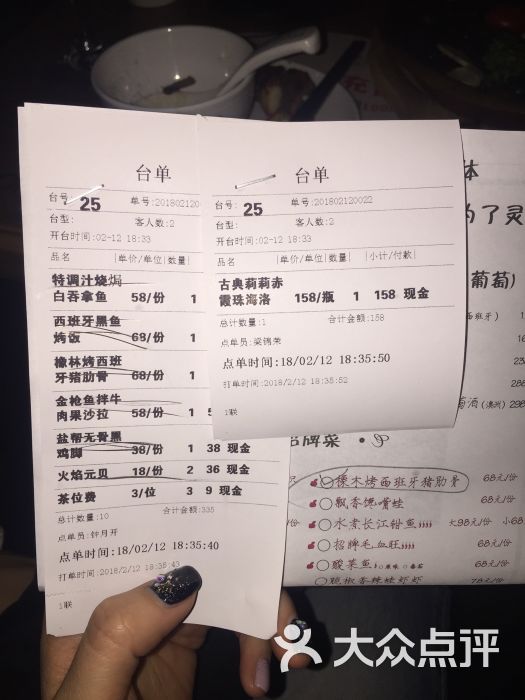 台单
台号: 25 单号:2018021200
台型: 客人数:2
开台时间:02-12 18:33
品名 |单价/单位|数量|
特调汁烧焗
白吞拿鱼 58/份 1
西班牙黑鱼
烤饭 68/份 1
橡林烤西班
牙猪肋骨 68/份 1
金枪鱼拌牛
肉果沙拉 58/份 1 5
盐帮无骨黑
鸡脚 38/份 1 38 现金
火焰元贝 18/份 2 36 现金
茶位费 3/位 3 9 现金
总计数量:10 合计金额:335
点单员:钟月开
点单时间:18/02/12 18:35:40
打单时间:2018/2/12 18:35:43
1联
台单
台号: 25 单号:201802120022
台型: 客人数:2
开台时间:02-12 18:33
品名 |单价/单位|数量 |小计/付款|
古典莉莉赤
霞珠海洛 158/瓶 1 158 现金
总计数量:1 合计金额:158
点单员:梁锦荣
点单时间:18/02/12 18:35:50
打单时间:2018/2/12 18:35:52
1联
体
的了灵
葡萄)
西班牙)
萄酒(澳洲) 298
招牌菜
橡木烤西班牙猪肋骨 68元/份
飘香馋嘴蛙 68元/份
水煮长江钳鱼 大98元/份 小6
招牌毛血旺 68元/份
酸菜鱼 68元/份
椒香辣辣虾虾 78元/份
大众点评